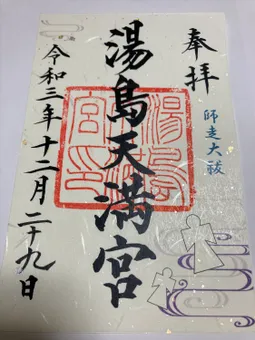 奉拝
師走大祓
湯島天満宮
令和三年十二月二十九日